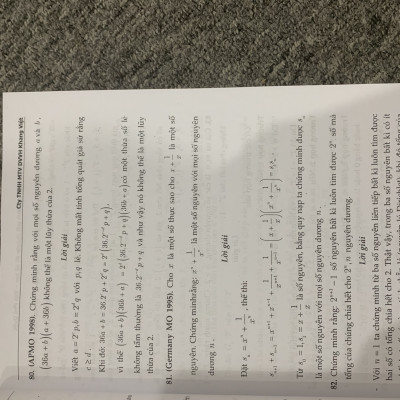 Cty TNHH MTV DVVH Khang Việt
80. (APMO 1998). Chứng minh rằng với mọi số nguyên dương a và b,
(36a + b)(a + 36b) không thể là một lũy thừa của 2.
Lời giải
Viết a = 2^c p, b = 2^d q với p, q lẻ. Không mất tính tổng quát giả sử rằng
c ≥ d.
Khi đó: 36a + b = 36.2^c p + 2^d q = 2^d (36.2^{c-d} p + q),
vì thế (36a + b)(36b + a) = 2^d (36.2^{c-d} p + q)(36b + a) có một thừa số lẻ
không tầm thường là 36.2^{c-d} p + q và như vậy nó không thể là một lũy
thừa của 2.
81. (Germany MO 1995). Cho x là một số thực sao cho x + 1/x là một số
nguyên. Chứng minh rằng: x^n + 1/x^n là một số nguyên với mọi số nguyên
dương n.
Lời giải
Đặt s_n = x^n + 1/x^n, thế thì:
s_{n+1} + s_{n-1} = x^{n+1} + 1/x^{n+1} + x^{n-1} + 1/x^{n-1} = (x + 1/x)(x^n + 1/x^n) = s_1 s_n.
Từ s_0 = 1, s_1 = x + 1/x là số nguyên, bằng quy nạp ta chứng minh được s_n
là một số nguyên với mọi số nguyên dương n.
82. Chứng minh rằng: 2^{n+1} − 1 số nguyên bất kì luôn tìm được 2^n số mà
tổng của chúng chia hết cho 2^n, n nguyên dương.
Lời giải
- Với n = 1 ta chứng minh từ ba số nguyên liên tiếp bất kì luôn tìm được
hai số có tổng chia hết cho 2. Thật vậy, trong ba số nguyên bất kì có ít